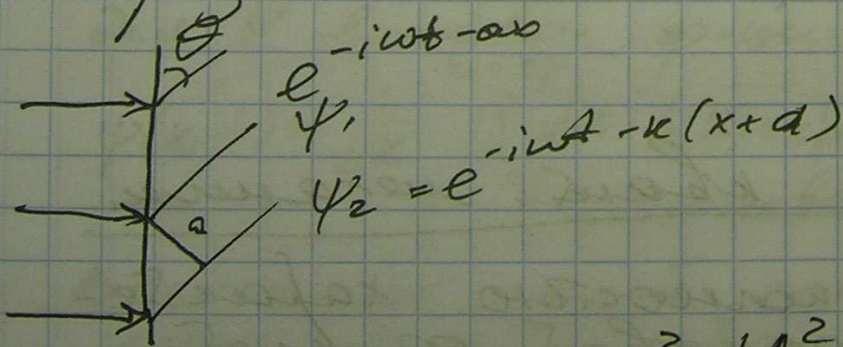 θ
e^{-iωt-αx}
ψ₁
ψ₂ = e^{-iωt - k(x+d)}
a